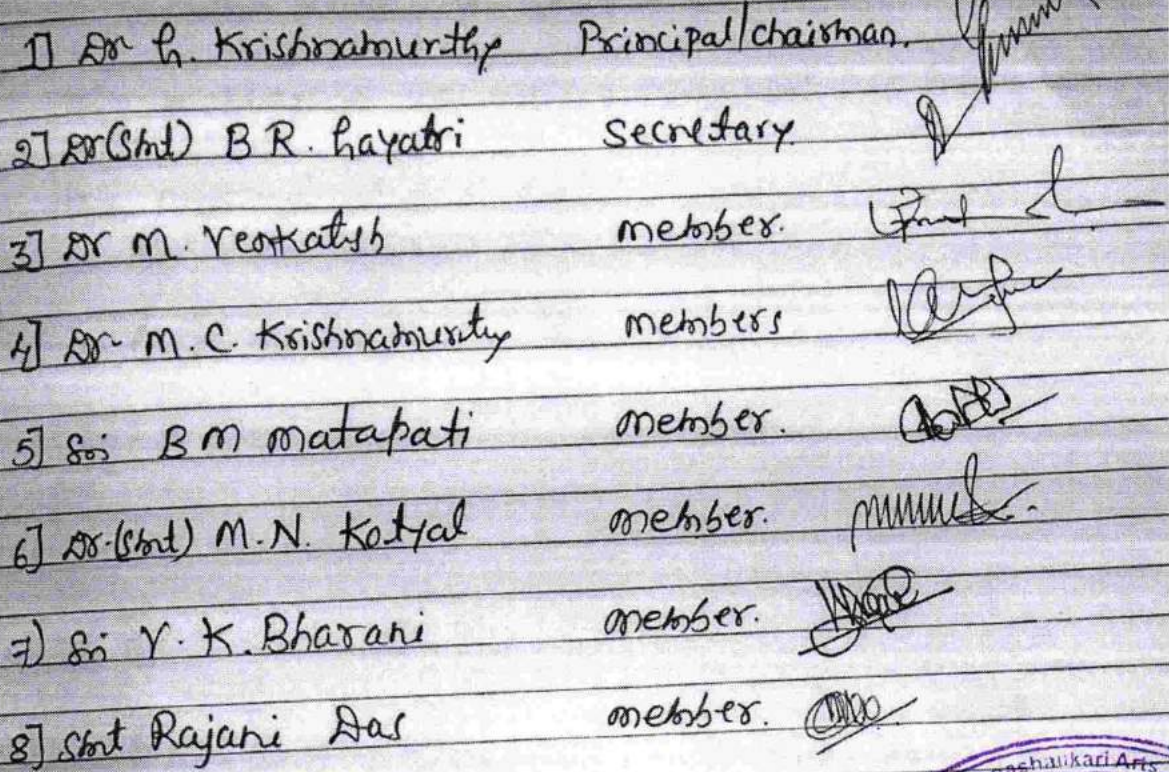 1] Dr G. Krishnamurthy Principal/chairman.
2] Dr(Smt) B R. Gayatri secretary.
3] Dr M. Venkatesh member.
4] Dr M. C. Krishnamurthy members
5] Sri B M Matapati member.
6] Dr.(Smt) M.N. Kotyal member.
7) Sri V. K. Bharani member.
8] Smt Rajani Das member.
ashankari Arts